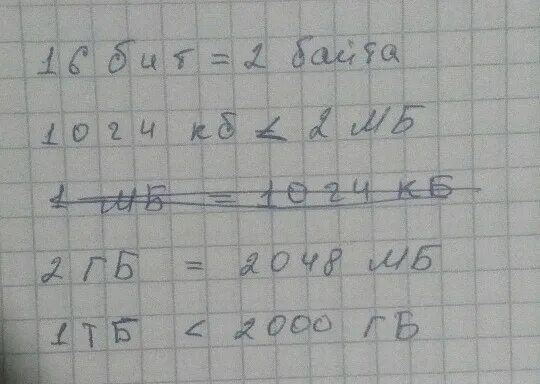 16 бит = 2 байта
1024 кб < 2 МБ
1 МБ = 1024 КБ
2 ГБ = 2048 МБ
1ТБ < 2000 ГБ